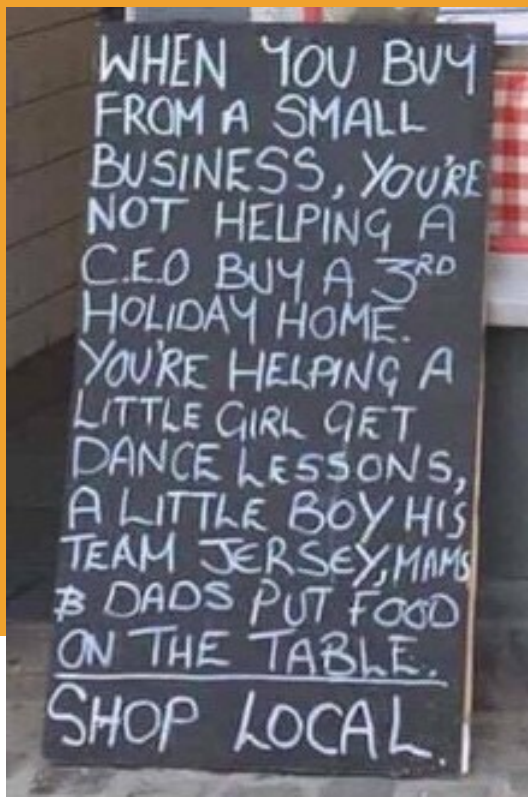 WHEN YOU BUY
FROM A SMALL
BUSINESS, YOU'RE
NOT HELPING A
C.E.O BUY A 3RD
HOLIDAY HOME.
YOU'RE HELPING A
LITTLE GIRL GET
DANCE LESSONS,
A LITTLE BOY HIS
TEAM JERSEY, MAMS
& DADS PUT FOOD
ON THE TABLE.
SHOP LOCAL.